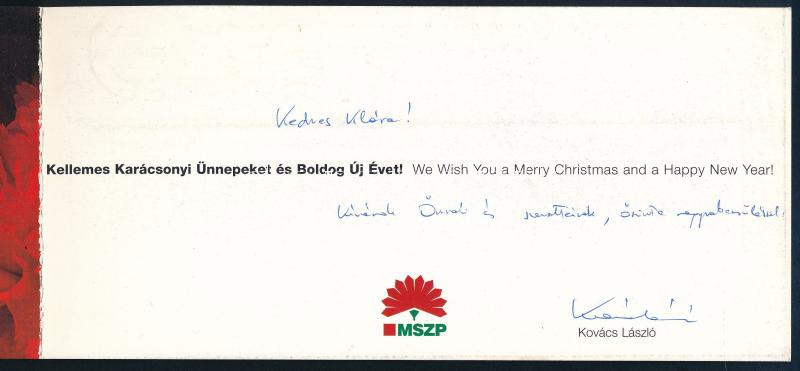 Kedves Klára!
Kellemes Karácsonyi Ünnepeket és Boldog Új Évet! We Wish You a Merry Christmas and a Happy New Year!
Kívánok Önnek és szeretteinek, őszinte nagyrabecsüléssel:
MSZP
Kovács László